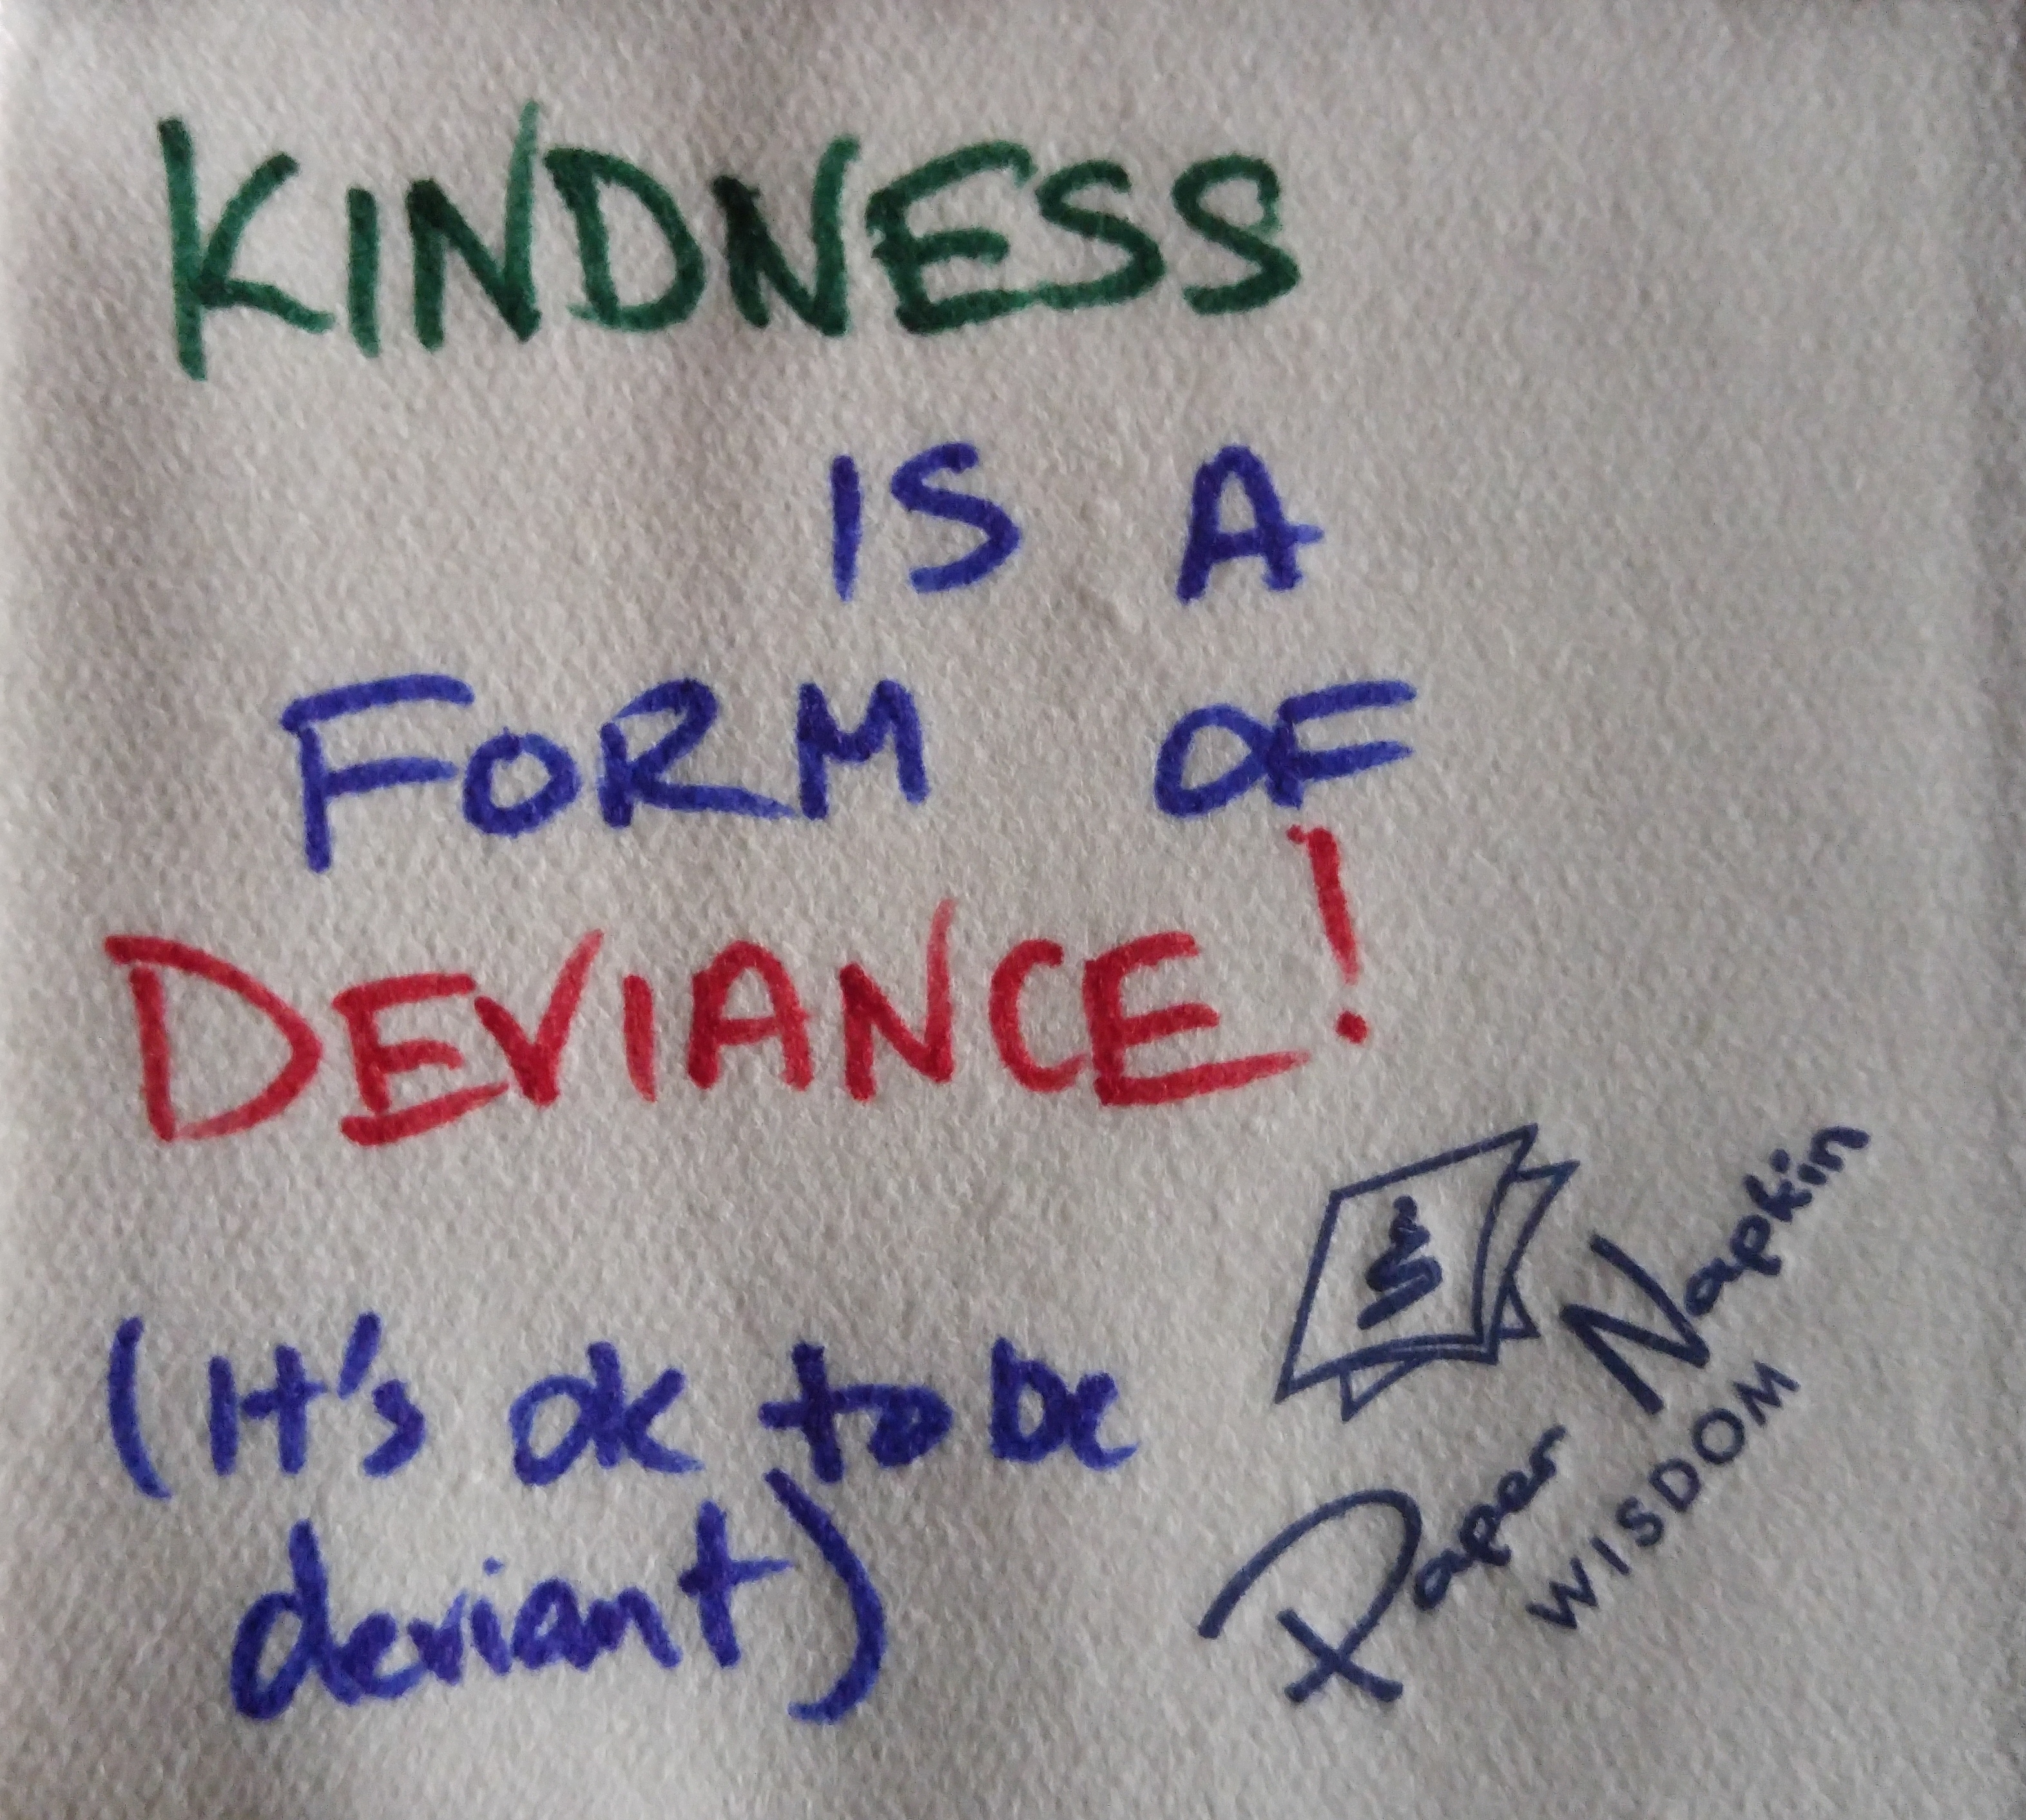 KINDNESS
IS A
FORM OF
DEVIANCE!
(It's ok to be
deviant)
Paper Napkin
WISDOM